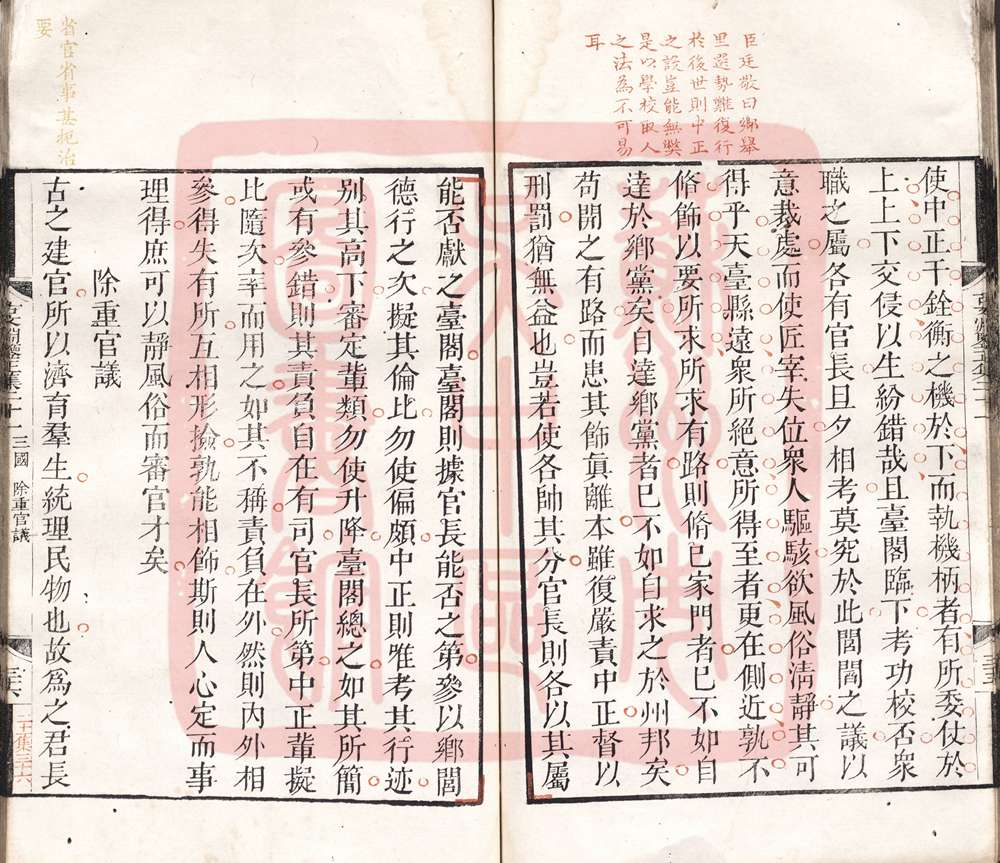 臣廷敬曰鄉舉
里選勢難復行
於後世則中正
之設豈能無弊
是以學校取人
之法為不可易
耳
使中正干銓衡之機於下而執機柄者有所委仗於
上上下交侵以生紛錯哉且臺閣臨下考功校否衆
職之屬各有官長旦夕相考莫究於此閭閻之議以
意裁處而使匠宰失位衆人驅駭欲風俗淸靜其可
得乎天臺縣遠衆所絕意所得至者更在側近孰不
脩飾以要所求所求有路則脩已家門者已不如自
達於鄉黨矣自達鄉黨者已不如自求之於州邦矣
苟開之有路而患其飾眞離本雖復嚴責中正督以
刑罰猶無益也豈若使各帥其分官長則各以其屬
能否獻之臺閣臺閣則據官長能否之第參以鄉閭
德行之次擬其倫比勿使偏頗中正則唯考其行迹
別其高下審定輩類勿使升降臺閣總之如其所簡
或有參錯則其責負自在有司官長所第中正輩擬
比隨次率而用之如其不稱責負在外然則內外相
參得失有所互相形撿孰能相飾斯則人心定而事
理得庶可以靜風俗而審官才矣
除重官議
古之建官所以濟育羣生統理民物也故爲之君長
省官省事甚扼治
要
三國
除重官議